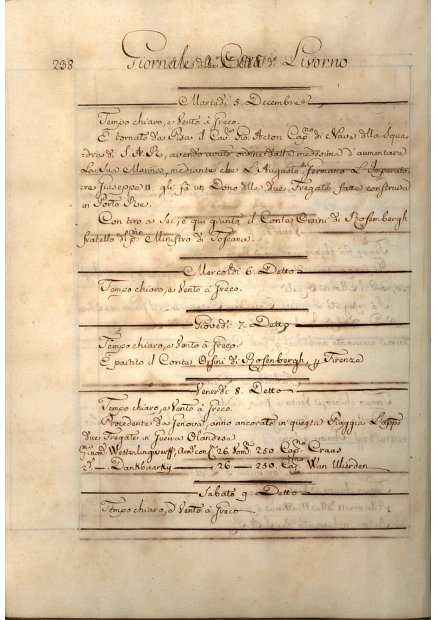 238 Giornale della Città di Livorno
Martedì 5. Decembre
Tempo chiaro, e Vento à Greco.
È tornato da Pisa il Cav.re Gio. Acton Cap.o di Nave della Squa=
dra di S.A.R., avendo avuto ordine dalla medesima d'aumentare
La Sua Marina, mediante che L'Augusto Germano L'Imperato=
re Giuseppe II gli fà un Dono delle due Fregate fatte construire
in Porto Rè.
Con tiro a Sei, è qui giunto il Conte Orsini di Rosenbergh
fratello del p.mo Ministro di Toscana.
Mercoldì 6. Detto
Tempo chiaro, e Vento à Greco.
Giovedì 7. Detto
Tempo chiaro, e Vento à Greco.
È partito il Conte Orsini di Rosenbergh, p Firenze
Venerdì 8. Detto
Tempo chiaro, e Vento à Greco.
Procedente da Genova, anno ancorato in questa Spiaggia L'app.e
due Fregate in Guerra Olandesi
26 250. Cap.no Craas
2.a Dankbaarky 26 250 Cap. Wan Wierden
Sabato 9. Detto
Tempo chiaro, e Vento à Greco